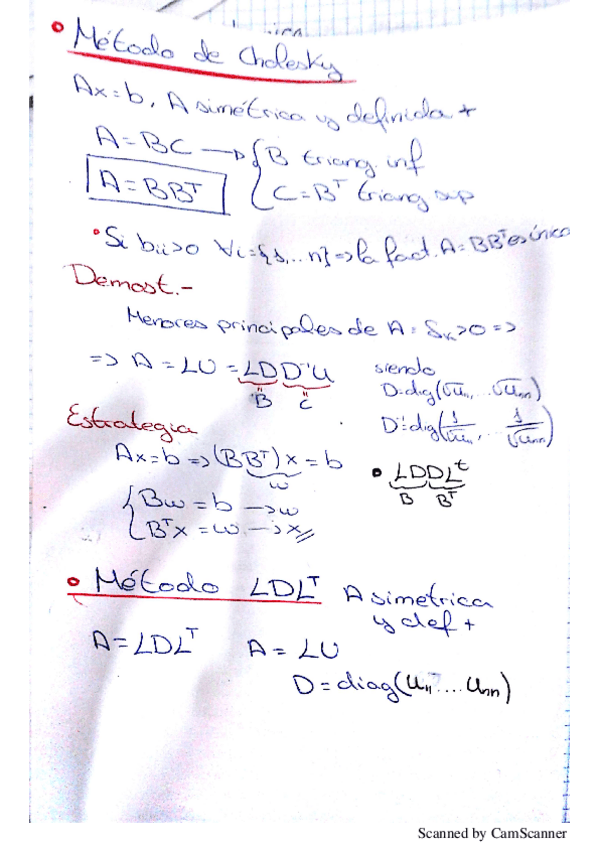 • Método de Cholesky
Ax=b, A simétrica y definida +
A=BC → { B triang. inf
A=BBᵀ { C=Bᵀ triang sup
• Si bᵢᵢ>0 ∀i={1,...n} => la fact. A=BBᵀ es única
Demost.-
Menores principales de A: δₖ>0 =>
=> A = LU = LDD⁻¹U siendo
B C D=diag(√u₁₁, ... √uₙₙ)
Estrategia D⁻¹=diag(1/√u₁₁, ... 1/√uₙₙ)
Ax=b => (BBᵀ)x = b • LDDLᵗ
w B Bᵀ
{ Bw = b → w
{ Bᵀx = w → x //
• Método LDLᵀ A simetrica
y def +
A=LDLᵀ A = LU
D=diag(u₁₁ .... uₙₙ)
Scanned by CamScanner